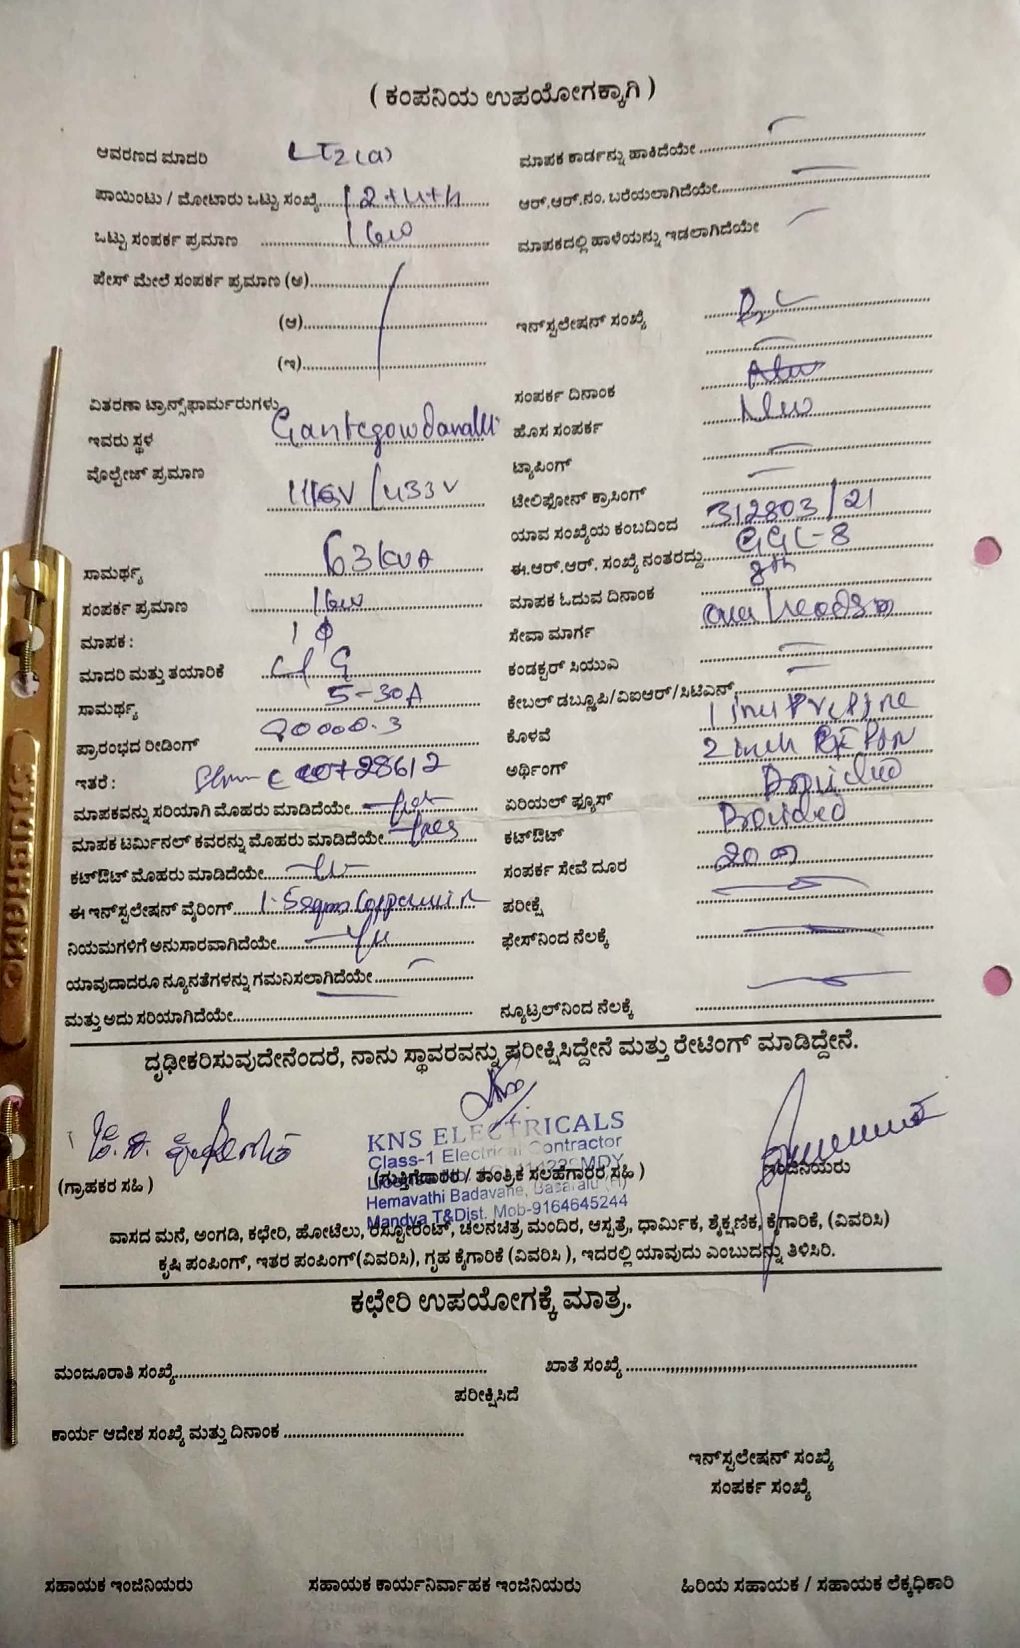 ( ಕಂಪನಿಯ ಉಪಯೋಗಕ್ಕಾಗಿ )
ಆವರಣದ ಮಾದರಿ LT2(a)
ಮಾಪಕ ಕಾರ್ಡನ್ನು ಹಾಕಿದೆಯೇ
ಪಾಯಿಂಟು / ಮೋಟಾರು ಒಟ್ಟು ಸಂಖ್ಯೆ
ಆರ್.ಆರ್.ನಂ. ಬರೆಯಲಾಗಿದೆಯೇ
ಒಟ್ಟು ಸಂಪರ್ಕ ಪ್ರಮಾಣ 1kw
ಮಾಪಕದಲ್ಲಿ ಹಾಳೆಯನ್ನು ಇಡಲಾಗಿದೆಯೇ
ಪೇಸ್ ಮೇಲೆ ಸಂಪರ್ಕ ಪ್ರಮಾಣ (ಅ)
(ಆ)
ಇನ್‌ಸ್ಟಲೇಷನ್ ಸಂಖ್ಯೆ
(ಇ)
ಸಂಪರ್ಕ ದಿನಾಂಕ
ವಿತರಣಾ ಟ್ರಾನ್ಸ್‌ಫಾರ್ಮರುಗಳು
ಹೊಸ ಸಂಪರ್ಕ New
ಇವರು ಸ್ಥಳ
ಟ್ಯಾಪಿಂಗ್
ವೊಲ್ಟೇಜ್ ಪ್ರಮಾಣ 11kv / 433V
ಟೇಲಿಫೋನ್ ಕ್ರಾಸಿಂಗ್
ಯಾವ ಸಂಖ್ಯೆಯ ಕಂಬದಿಂದ 312803/21
ಸಾಮರ್ಥ್ಯ 63KVA
ಈ.ಆರ್.ಆರ್. ಸಂಖ್ಯೆ ನಂತರದ್ದು GGL-8
ಸಂಪರ್ಕ ಪ್ರಮಾಣ 1kw
ಮಾಪಕ ಓದುವ ದಿನಾಂಕ 8th
ಮಾಪಕ : 1 ϕ
ಸೇವಾ ಮಾರ್ಗ
ಮಾದರಿ ಮತ್ತು ತಯಾರಿಕೆ
ಕಂಡಕ್ಟರ್ ಸಿಯುವಿ
ಸಾಮರ್ಥ್ಯ 5-30A
ಕೇಬಲ್ ಡಬ್ಲೂಪಿ/ವಿಐಆರ್/ಸಿಟಿಎನ್
ಪ್ರಾರಂಭದ ರೀಡಿಂಗ್ 00000.3
ಕೊಳವೆ
ಇತರೆ :
ಅರ್ಥಿಂಗ್ 2 inch
ಮಾಪಕವನ್ನು ಸರಿಯಾಗಿ ಮೊಹರು ಮಾಡಿದೆಯೇ
ಏರಿಯಲ್ ಫ್ಯೂಸ್ Provided
ಮಾಪಕ ಟರ್ಮಿನಲ್ ಕವರನ್ನು ಮೊಹರು ಮಾಡಿದೆಯೇ
ಕಟ್‌ಔಟ್ Provided
ಕಟ್‌ಔಟ್ ಮೊಹರು ಮಾಡಿದೆಯೇ
ಸಂಪರ್ಕ ಸೇವೆ ದೂರ 20m
ಈ ಇನ್‌ಸ್ಟಲೇಷನ್ ವೈರಿಂಗ್
ಪರೀಕ್ಷೆ
ನಿಯಮಗಳಿಗೆ ಅನುಸಾರವಾಗಿದೆಯೇ
ಫೇಸ್‌ನಿಂದ ನೆಲಕ್ಕೆ
ಯಾವುದಾದರೂ ನ್ಯೂನತೆಗಳನ್ನು ಗಮನಿಸಲಾಗಿದೆಯೇ
ಮತ್ತು ಅದು ಸರಿಯಾಗಿದೆಯೇ
ನ್ಯೂಟ್ರಲ್‌ನಿಂದ ನೆಲಕ್ಕೆ
ದೃಢೀಕರಿಸುವುದೇನೆಂದರೆ, ನಾನು ಸ್ಥಾವರವನ್ನು ಪರೀಕ್ಷಿಸಿದ್ದೇನೆ ಮತ್ತು ರೇಟಿಂಗ್ ಮಾಡಿದ್ದೇನೆ.
KNS ELECTRICALS
Class-1 Electrical Contractor
(ಗ್ರಾಹಕರ ಸಹಿ )
(ಗುತ್ತಿಗೆದಾರರು / ತಾಂತ್ರಿಕ ಸಲಹೆಗಾರರ ಸಹಿ )
ಇಂಜಿನಿಯರು
Hemavathi Badavane, Basaralu (H)
Mandya T&Dist. Mob-9164645244
ವಾಸದ ಮನೆ, ಅಂಗಡಿ, ಕಛೇರಿ, ಹೋಟೆಲು, ರೆಸ್ಟೋರೆಂಟ್, ಚಲನಚಿತ್ರ ಮಂದಿರ, ಆಸ್ಪತ್ರೆ, ಧಾರ್ಮಿಕ, ಶೈಕ್ಷಣಿಕ, ಕೈಗಾರಿಕೆ, (ವಿವರಿಸಿ)
ಕೃಷಿ ಪಂಪಿಂಗ್, ಇತರ ಪಂಪಿಂಗ್(ವಿವರಿಸಿ), ಗೃಹ ಕೈಗಾರಿಕೆ (ವಿವರಿಸಿ ), ಇದರಲ್ಲಿ ಯಾವುದು ಎಂಬುದನ್ನು ತಿಳಿಸಿರಿ.
ಕಛೇರಿ ಉಪಯೋಗಕ್ಕೆ ಮಾತ್ರ.
ಮಂಜೂರಾತಿ ಸಂಖ್ಯೆ
ಖಾತೆ ಸಂಖ್ಯೆ
ಪರೀಕ್ಷಿಸಿದೆ
ಕಾರ್ಯ ಆದೇಶ ಸಂಖ್ಯೆ ಮತ್ತು ದಿನಾಂಕ
ಇನ್‌ಸ್ಟಲೇಷನ್ ಸಂಖ್ಯೆ
ಸಂಪರ್ಕ ಸಂಖ್ಯೆ
ಸಹಾಯಕ ಇಂಜಿನಿಯರು
ಸಹಾಯಕ ಕಾರ್ಯನಿರ್ವಾಹಕ ಇಂಜಿನಿಯರು
ಹಿರಿಯ ಸಹಾಯಕ / ಸಹಾಯಕ ಲೆಕ್ಕಧಿಕಾರಿ